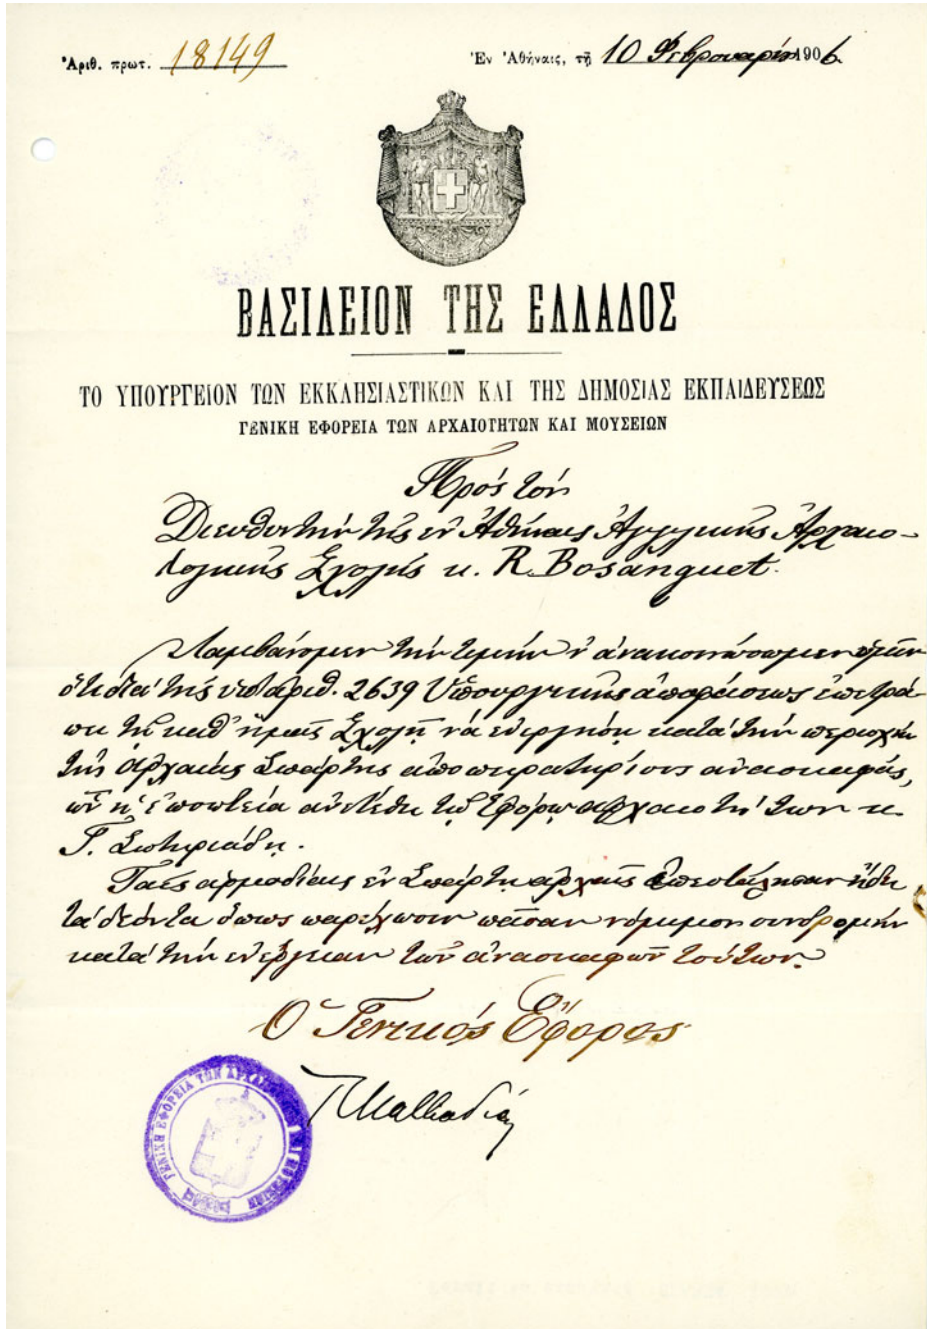 Ἀριθ. πρωτ. 18149
Ἐν Ἀθήναις, τῇ 10 Φεβρουαρίου 1906
ΒΑΣΙΛΕΙΟΝ ΤΗΣ ΕΛΛΑΔΟΣ
ΤΟ ΥΠΟΥΡΓΕΙΟΝ ΤΩΝ ΕΚΚΛΗΣΙΑΣΤΙΚΩΝ ΚΑΙ ΤΗΣ ΔΗΜΟΣΙΑΣ ΕΚΠΑΙΔΕΥΣΕΩΣ
ΓΕΝΙΚΗ ΕΦΟΡΕΙΑ ΤΩΝ ΑΡΧΑΙΟΤΗΤΩΝ ΚΑΙ ΜΟΥΣΕΙΩΝ
Πρός τόν
Διευθυντήν τῆς ἐν Ἀθήναις Ἀγγλικῆς Ἀρχαιο-
λογικῆς Σχολῆς κ. R. Bosanquet.
Λαμβάνομεν τήν τιμήν ν' ἀνακοινώσωμεν ὑμῖν
ὅτι διά τῆς ὑπ' ἀριθ. 2639 Ὑπουργικῆς ἀποφάσεως ἐπετρά-
πη τῇ καθ' ὑμᾶς Σχολῇ νά ἐνεργήσῃ κατά τήν περιοχήν
τῆς ἀρχαίας Σπάρτης ἀποπειρατηρίους ἀνασκαφάς,
ὧν ἡ ἐποπτεία ἀνετέθη τῷ Ἐφόρῳ ἀρχαιοτήτων κ.
Γ. Σωτηριάδῃ.
Ταῖς ἁρμοδίαις ἐν Σπάρτῃ ἀρχαῖς ἀπεστάλησαν ἤδη
τά δέοντα ὅπως παρέχωσιν πᾶσαν νόμιμον συνδρομήν
κατά τήν ἐνέργειαν τῶν ἀνασκαφῶν τούτων.
Ὁ Γενικός Ἔφορος
Π Καββαδίας
ΓΕΝΙΚΗ ΕΦΟΡΕΙΑ ΤΩΝ